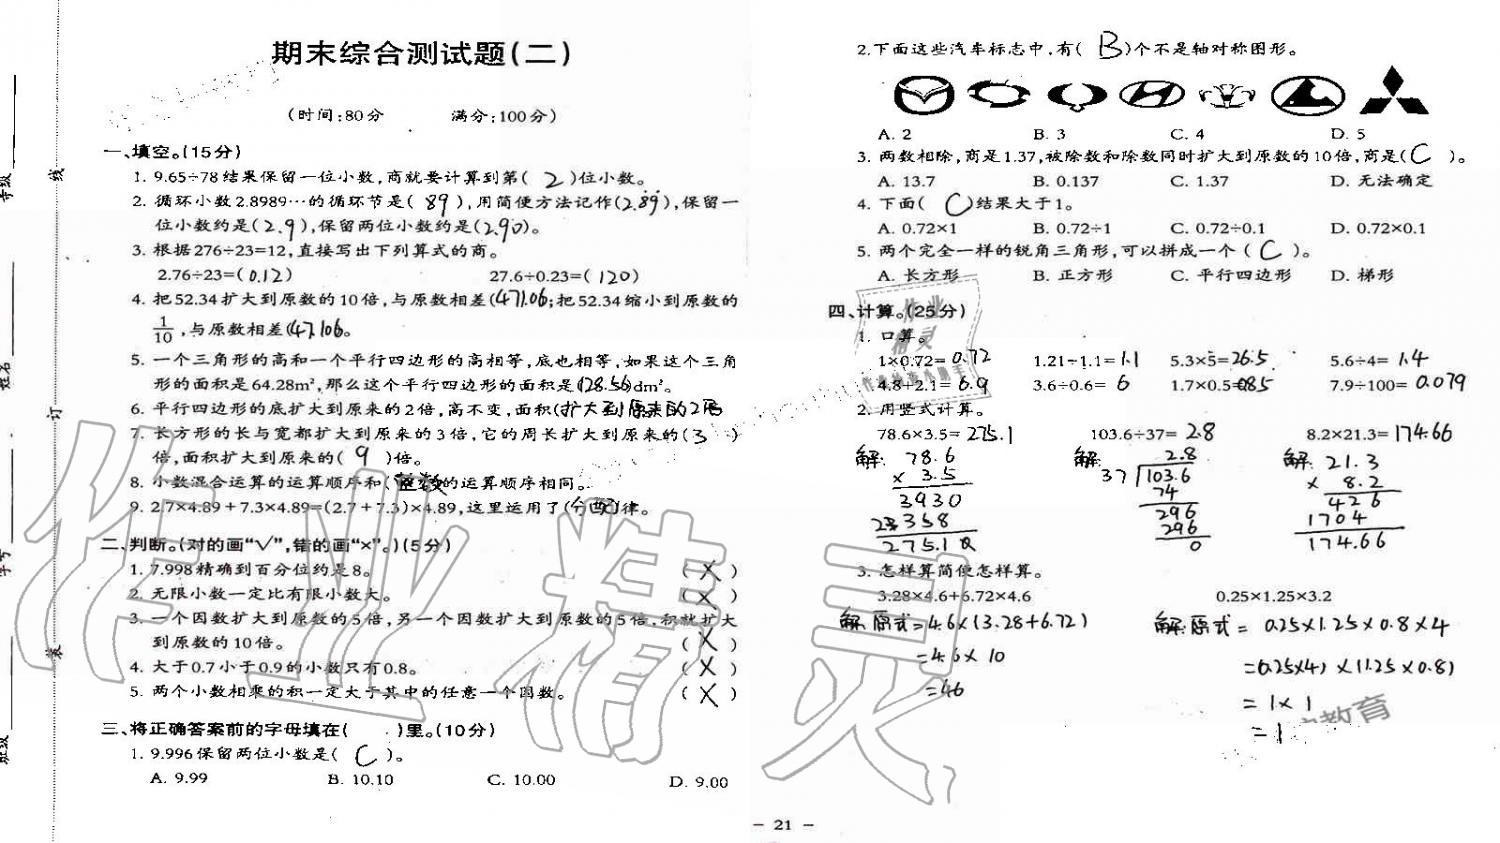 期末综合测试题(二)
(时间:80分 满分:100分)
一、填空。(15分)
1. 9.65÷78结果保留一位小数,商就要计算到第( 2 )位小数。
2. 循环小数2.8989…的循环节是( 89 ),用简便方法记作(2.89),保留一
位小数约是(2.9),保留两位小数约是(2.90)。
3. 根据276÷23=12,直接写出下列算式的商。
2.76÷23=(0.12) 27.6÷0.23=(120)
4. 把52.34扩大到原数的10倍,与原数相差(471.06;把52.34缩小到原数的
1/10,与原数相差(47.106。
5. 一个三角形的高和一个平行四边形的高相等,底也相等,如果这个三角
形的面积是64.28m²,那么这个平行四边形的面积是(128.56)dm²。
6. 平行四边形的底扩大到原来的2倍,高不变,面积(扩大到原来的2倍
7. 长方形的长与宽都扩大到原来的3倍,它的周长扩大到原来的(3 )
倍,面积扩大到原来的( 9 )倍。
8. 小数混合运算的运算顺序和(整数的运算顺序相同。
9. 2.7×4.89+7.3×4.89=(2.7+7.3)×4.89,这里运用了(分配)律。
二、判断。(对的画“√”,错的画“×”。)(5分)
1. 7.998精确到百分位约是8。 (×)
2. 无限小数一定比有限小数大。 (×)
3. 一个因数扩大到原数的5倍,另一个因数扩大到原数的5倍,积就扩大
到原数的10倍。 (×)
4. 大于0.7小于0.9的小数只有0.8。 (×)
5. 两个小数相乘的积一定大于其中的任意一个因数。 (×)
三、将正确答案前的字母填在( )里。(10分)
1. 9.996保留两位小数是( C )。
A. 9.99 B. 10.10 C. 10.00 D. 9.00
2. 下面这些汽车标志中,有( B )个不是轴对称图形。
A. 2 B. 3 C. 4 D. 5
3. 两数相除,商是1.37,被除数和除数同时扩大到原数的10倍,商是( C )。
A. 13.7 B. 0.137 C. 1.37 D. 无法确定
4. 下面( C )结果大于1。
A. 0.72×1 B. 0.72÷1 C. 0.72÷0.1 D. 0.72×0.1
5. 两个完全一样的锐角三角形,可以拼成一个( C )。
A. 长方形 B. 正方形 C. 平行四边形 D. 梯形
四、计算。(25分)
1. 口算。
1×0.72=0.72 1.21÷1.1=1.1 5.3×5=26.5 5.6÷4=1.4
4.8+2.1=6.9 3.6÷0.6=6 1.7×0.5=0.85 7.9÷100=0.079
2. 用竖式计算。
78.6×3.5=275.1 103.6÷37=2.8 8.2×21.3=174.66
解: 78.6 解: 2.8 解: 21.3
× 3.5 37 103.6 × 8.2
3930 74 426
2358 296 1704
275.10 296 174.66
0
3. 怎样算简便怎样算。
3.28×4.6+6.72×4.6 0.25×1.25×3.2
解:原式=4.6×(3.28+6.72) 解:原式=0.25×1.25×0.8×4
=4.6×10 =(0.25×4)×(1.25×0.8)
=46 =1×1
=1
- 21 -
班级
姓名
学号
装
订
线
作业精灵
作业
精灵
教育